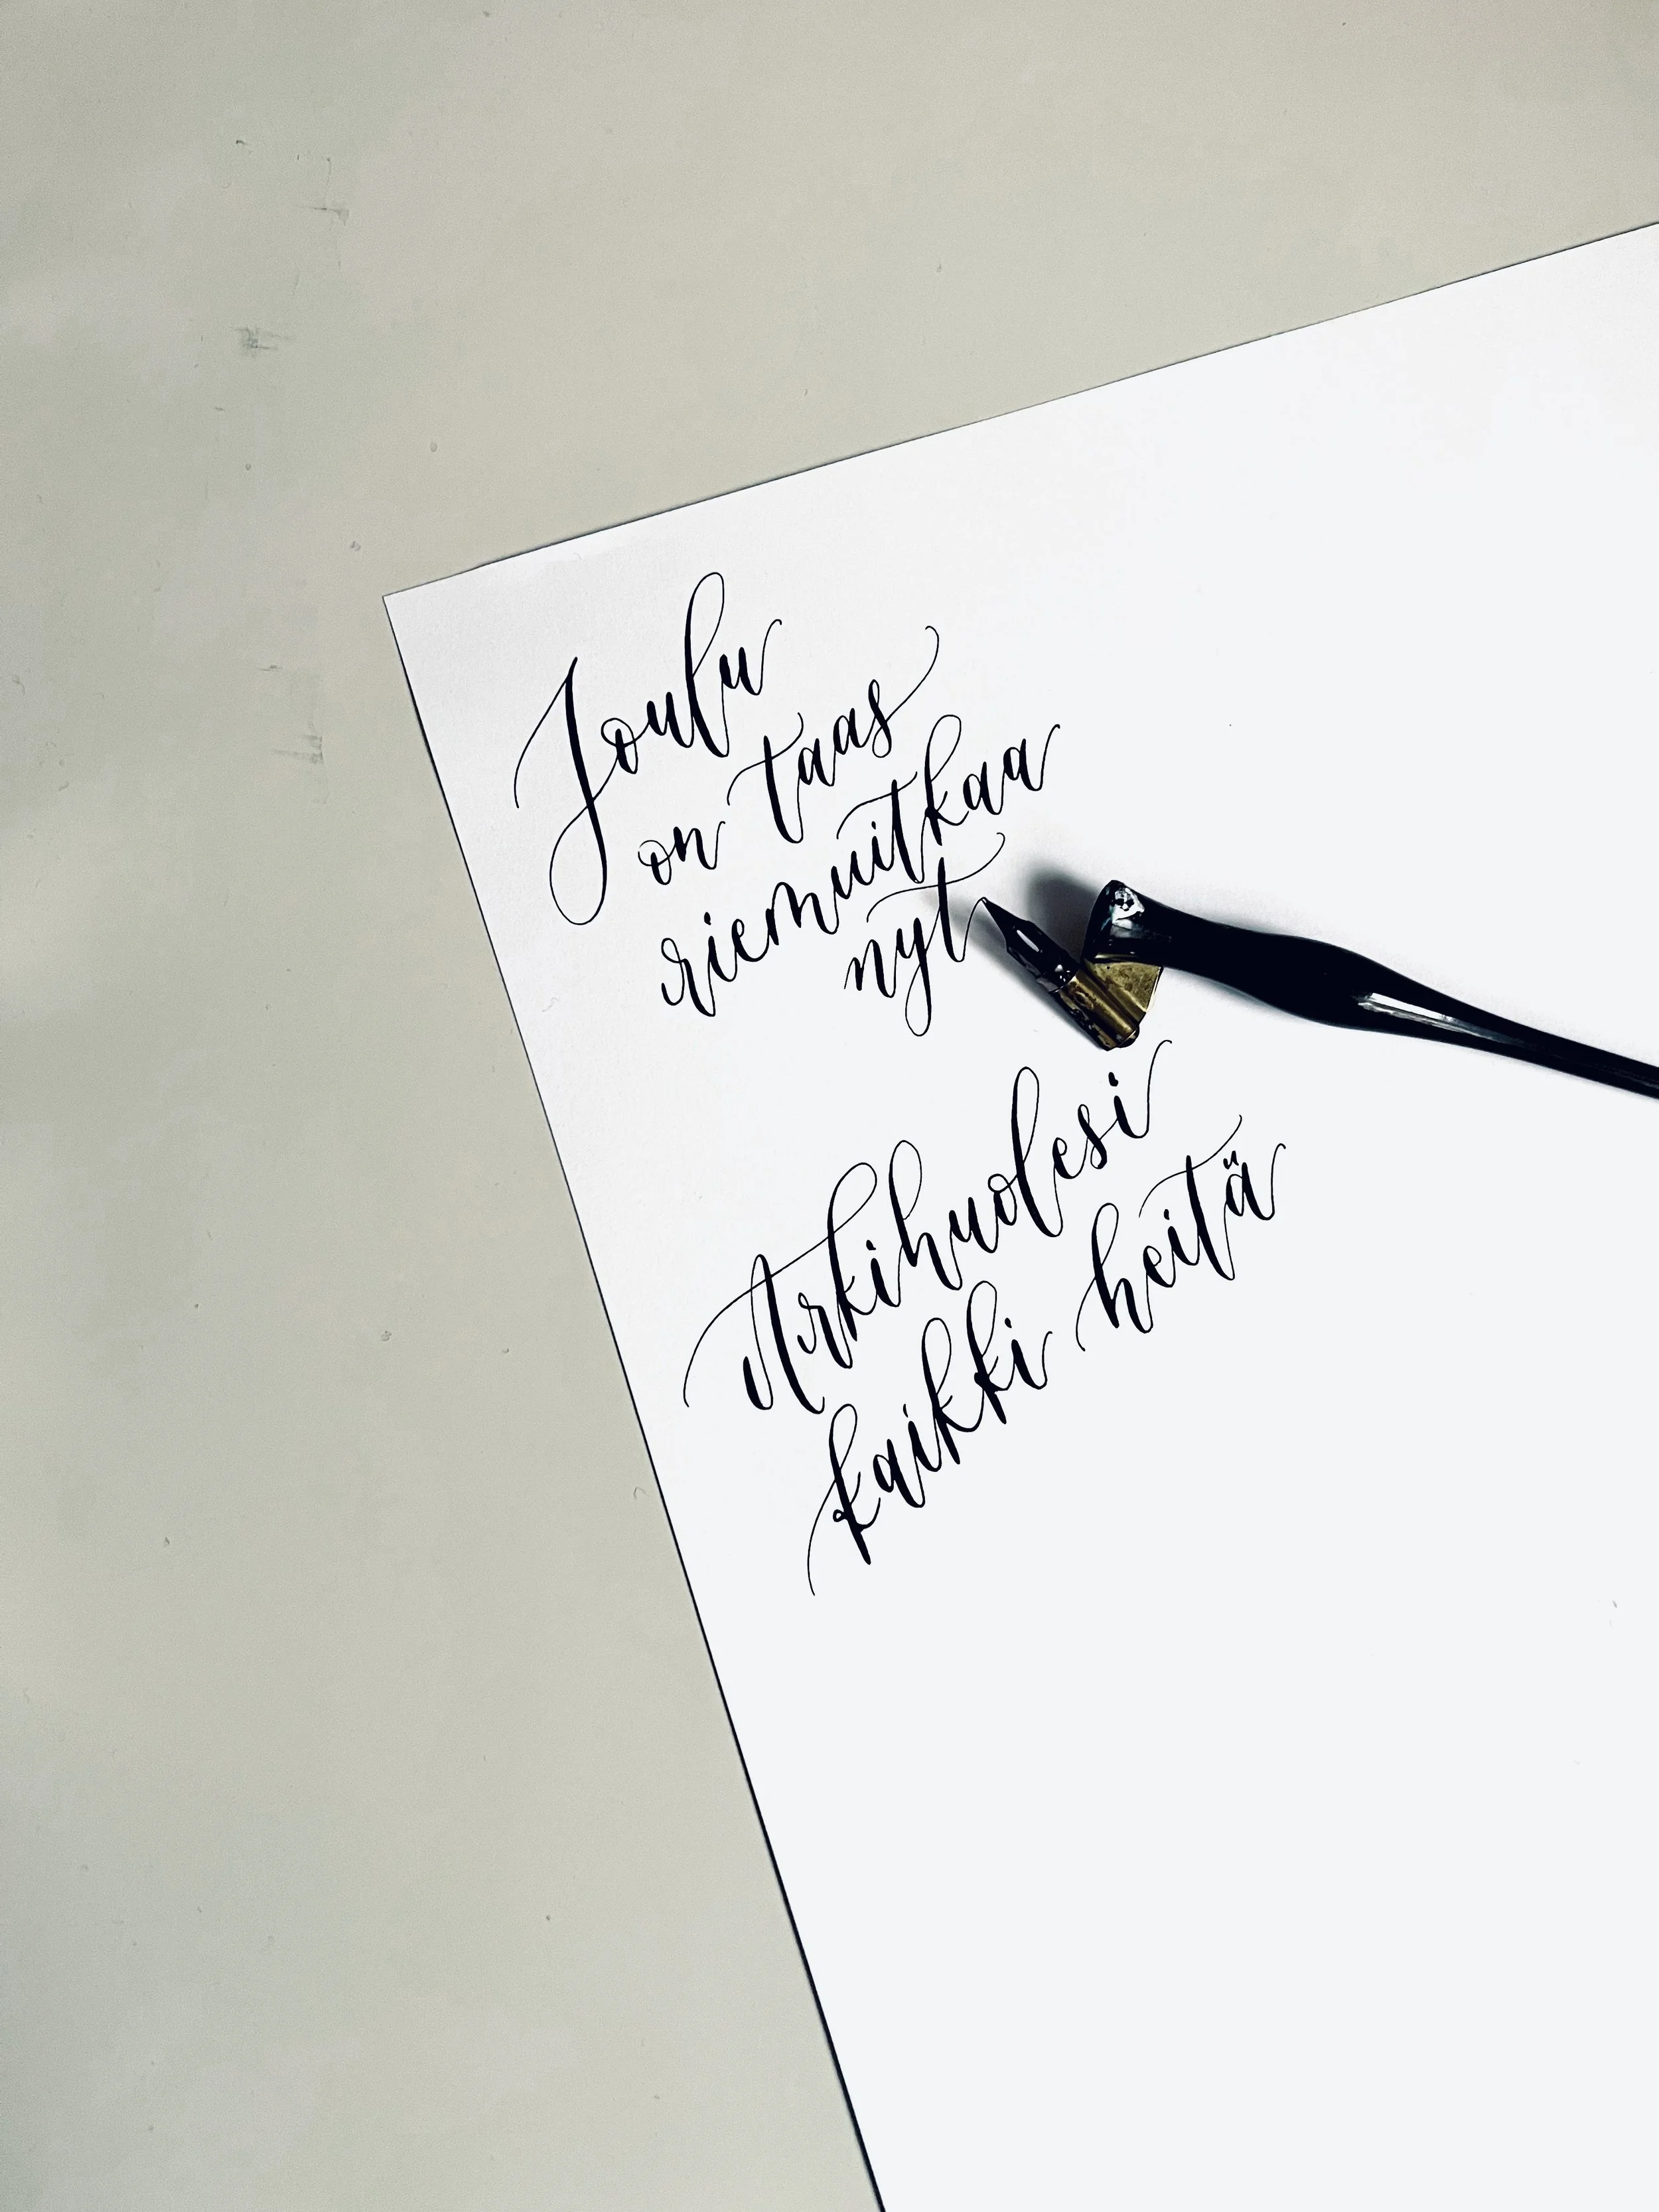 Joulu
on taas
riemuitkaa
nyt
Arkihuolesi
kaikki heitä